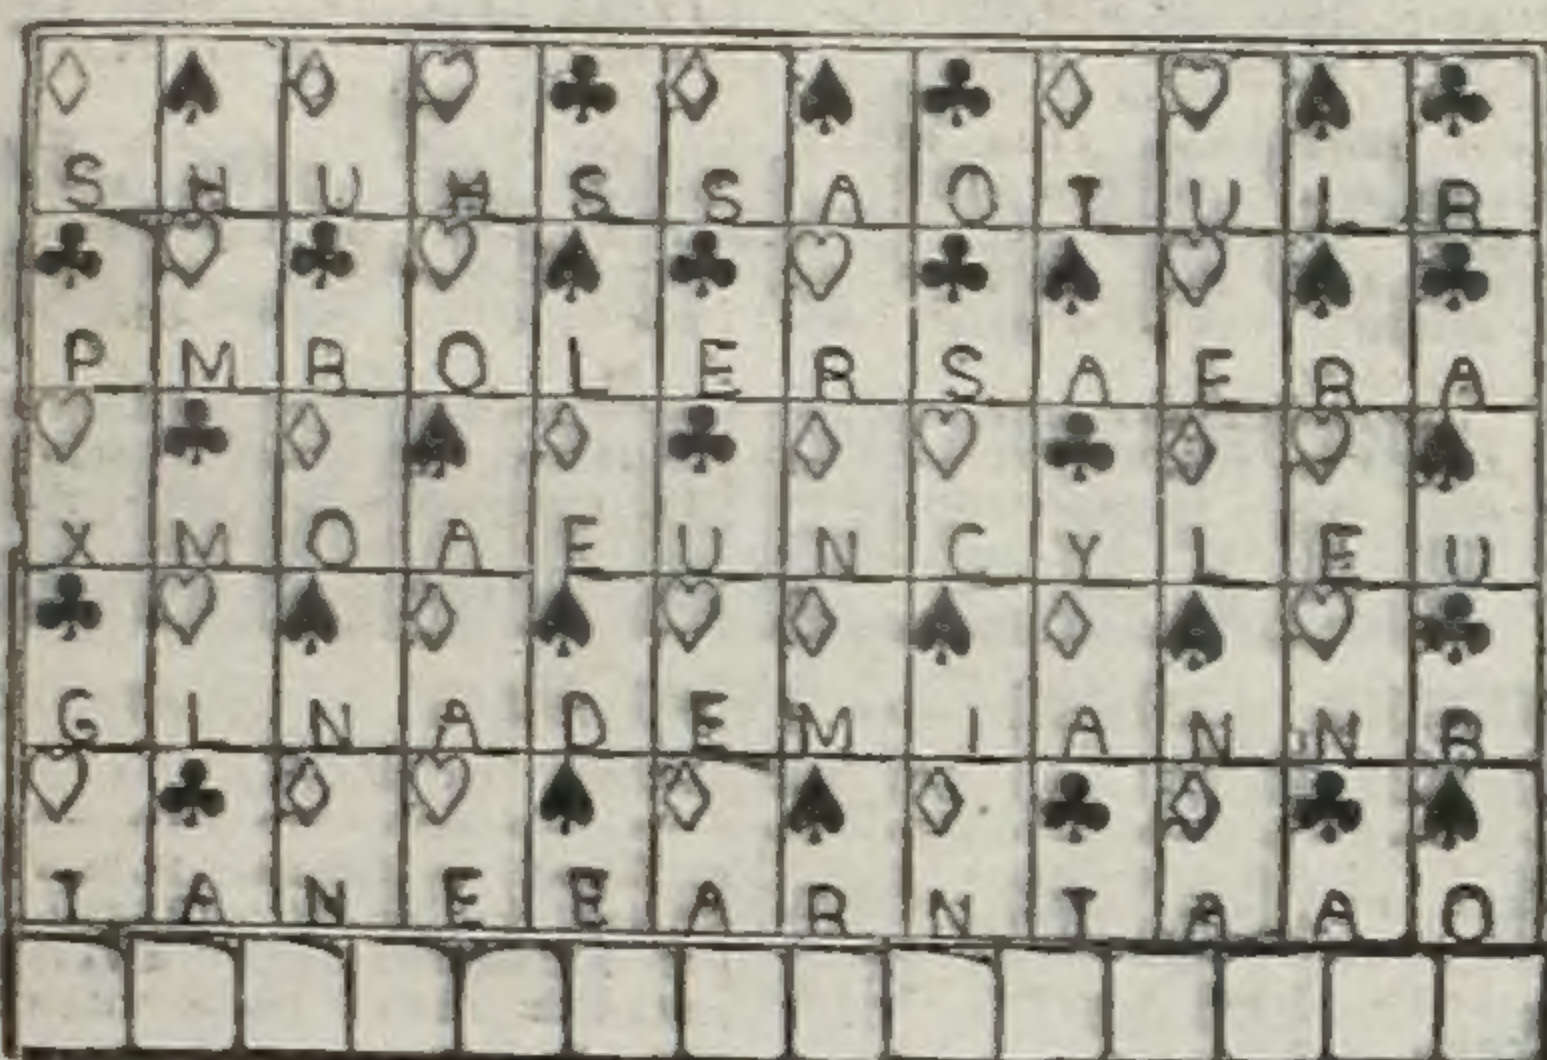 S H U H S S A O T U L R
P M R O L E R S A E R A
X M O A E U N C Y L E U
G L N A D E M I A N N R
T A N E E A R N T A A O